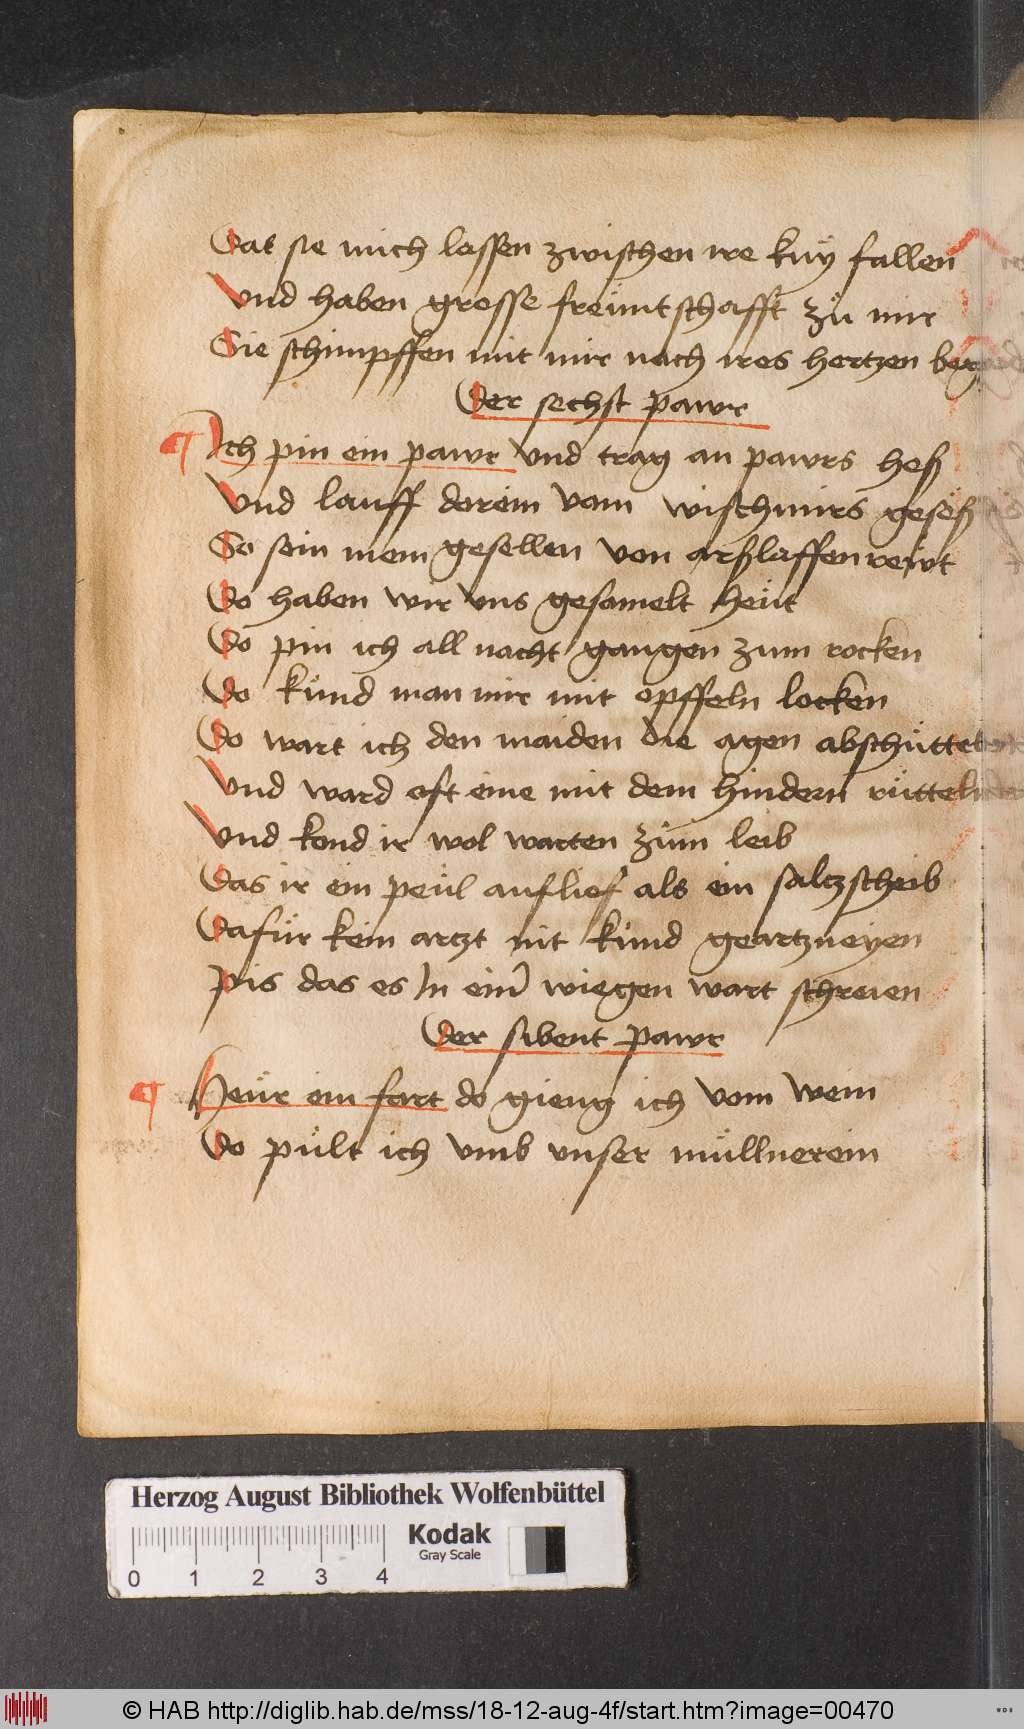 Dat sie mich lassen zwischen ire kny fallen
Vnd haben grosse freuntschafft zu mir
Sie schimpffen mit mir nach ires hertzen
Der sechst pawr
Ich pin ein pawr vnd trag an pawrs heß
Vnd lauff dorein vom wischmirs geseß
So sein mein gesellen von arßlaffenrewt
Do haben wir vns gesamelt heüt
Do pin ich all nacht gangen zum rocken
Do kund man mir mit opffeln locken
Do wart ich den maiden die agen
Vnd ward oft eine mit dem hindern
Vnd kond ir wol warten zum leib
Das ir ein peül auflief als ein saltzscheib
Dafür kein artzt nit kund geartzneyen
Pis das es in einr wiegen wart schreien
Der sibent pawr
Heür ein fart do gieng ich vom wein
Do pült ich vmb vnser müllnerein
Herzog August Bibliothek Wolfenbüttel
Kodak
Gray Scale
0 1 2 3 4
© HAB http://diglib.hab.de/mss/18-12-aug-4f/start.htm?image=00470